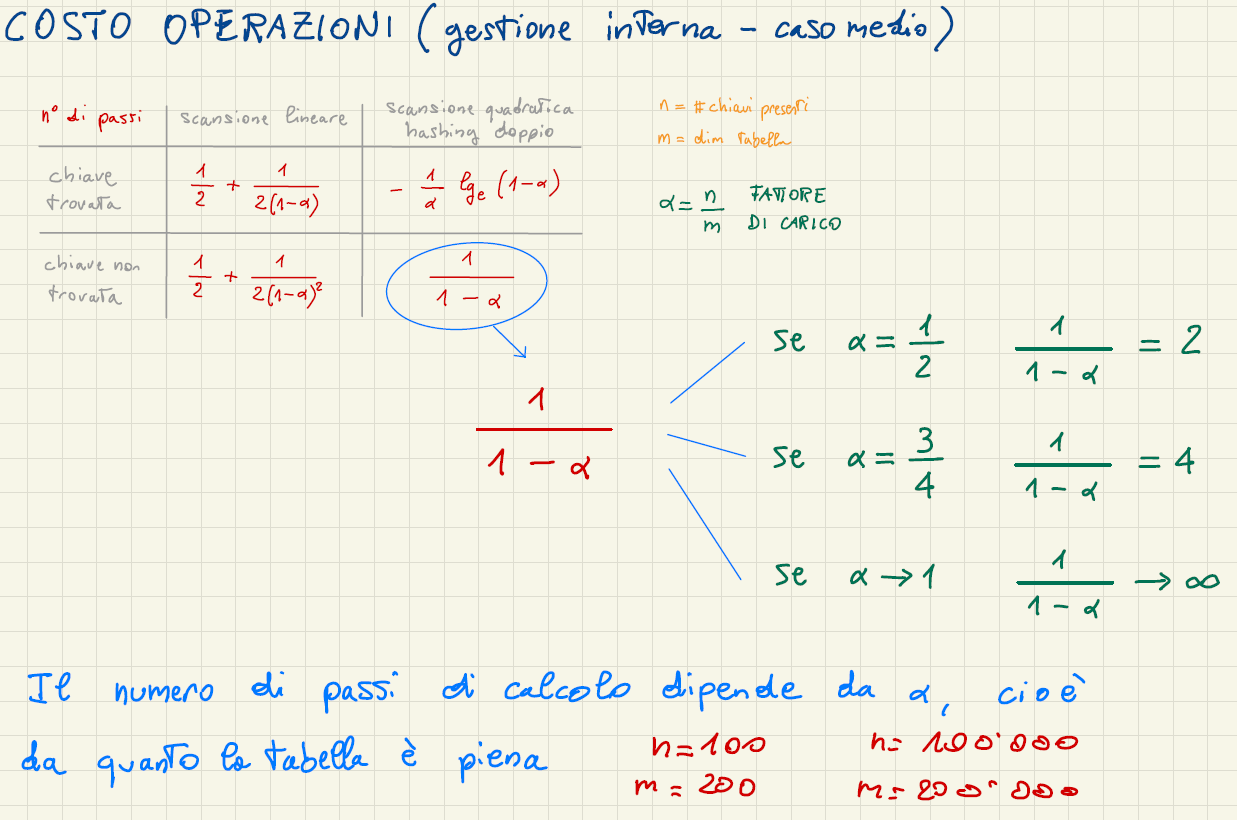 COSTO OPERAZIONI (gestione interna - caso medio)
n° di passi | scansione lineare | scansione quadratica hashing doppio
chiave trovata | 1/2 + 1/(2(1-α)) | - 1/α lg_e (1-α)
chiave non trovata | 1/2 + 1/(2(1-α)²) | 1/(1 - α)
n = # chiavi presenti
m = dim tabella
α = n/m FATTORE DI CARICO
1/(1 - α)
se α = 1/2 1/(1 - α) = 2
se α = 3/4 1/(1 - α) = 4
se α → 1 1/(1 - α) → ∞
Il numero di passi di calcolo dipende da α, cioè
da quanto la tabella è piena
n = 100
m = 200
n = 100'000
m = 200'000